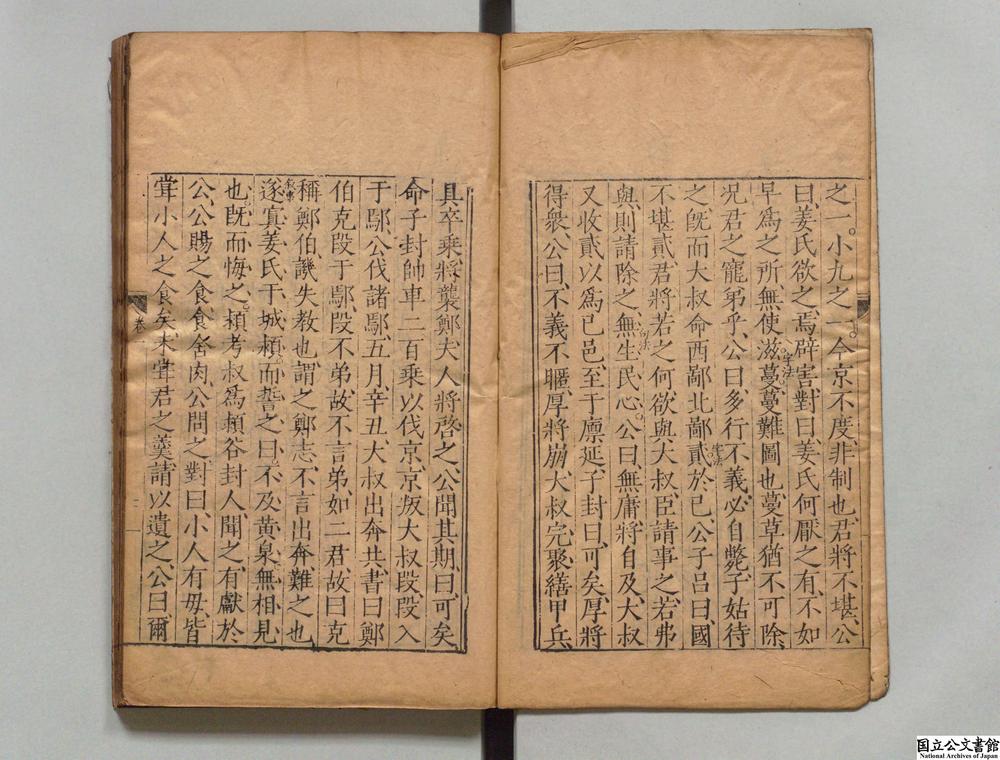 之一。小九之一。今京不度、非制也、君將不堪、公
曰、姜氏欲之、焉辟害、對曰、姜氏何厭之有、不如
字法
早爲之所、無使滋蔓、蔓難圖也、蔓草猶不可除、
况君之寵弟乎、公曰、多行不義、必自斃、子姑待
字法
之、旣而大叔命西鄙北鄙貳於已、公子呂曰、國
不堪貳、君將若之何、欲與大叔、臣請事之、若弗
字法
與、則請除之、無生民心。公曰、無庸、將自及、大叔
又收貳以爲已邑、至于廩延、子封曰、可矣、厚將
得衆、公曰、不義不暱、厚將崩、大叔完聚、繕甲兵、
具卒乘、將襲鄭、夫人將啓之、公聞其期、曰、可矣、
命子封帥車二百乘以伐京、京叛大叔段、段入
于鄢、公伐諸鄢、五月、辛丑、大叔出奔共、書曰、鄭
伯克段于鄢、段不弟、故不言弟、如二君、故曰克、
稱鄭伯、譏失教也、謂之鄭志、不言出奔、難之也、
叙事
遂寘姜氏于城頴、而誓之曰、不及黃泉、無相見
也、旣而悔之、頴考叔爲頴谷封人、聞之、有獻於
公、公賜之食、食舍肉、公問之、對曰、小人有母、皆
甞小人之食矣、未甞君之羹、請以遺之、公曰、爾
卷一
国立公文書館
National Archives of Japan